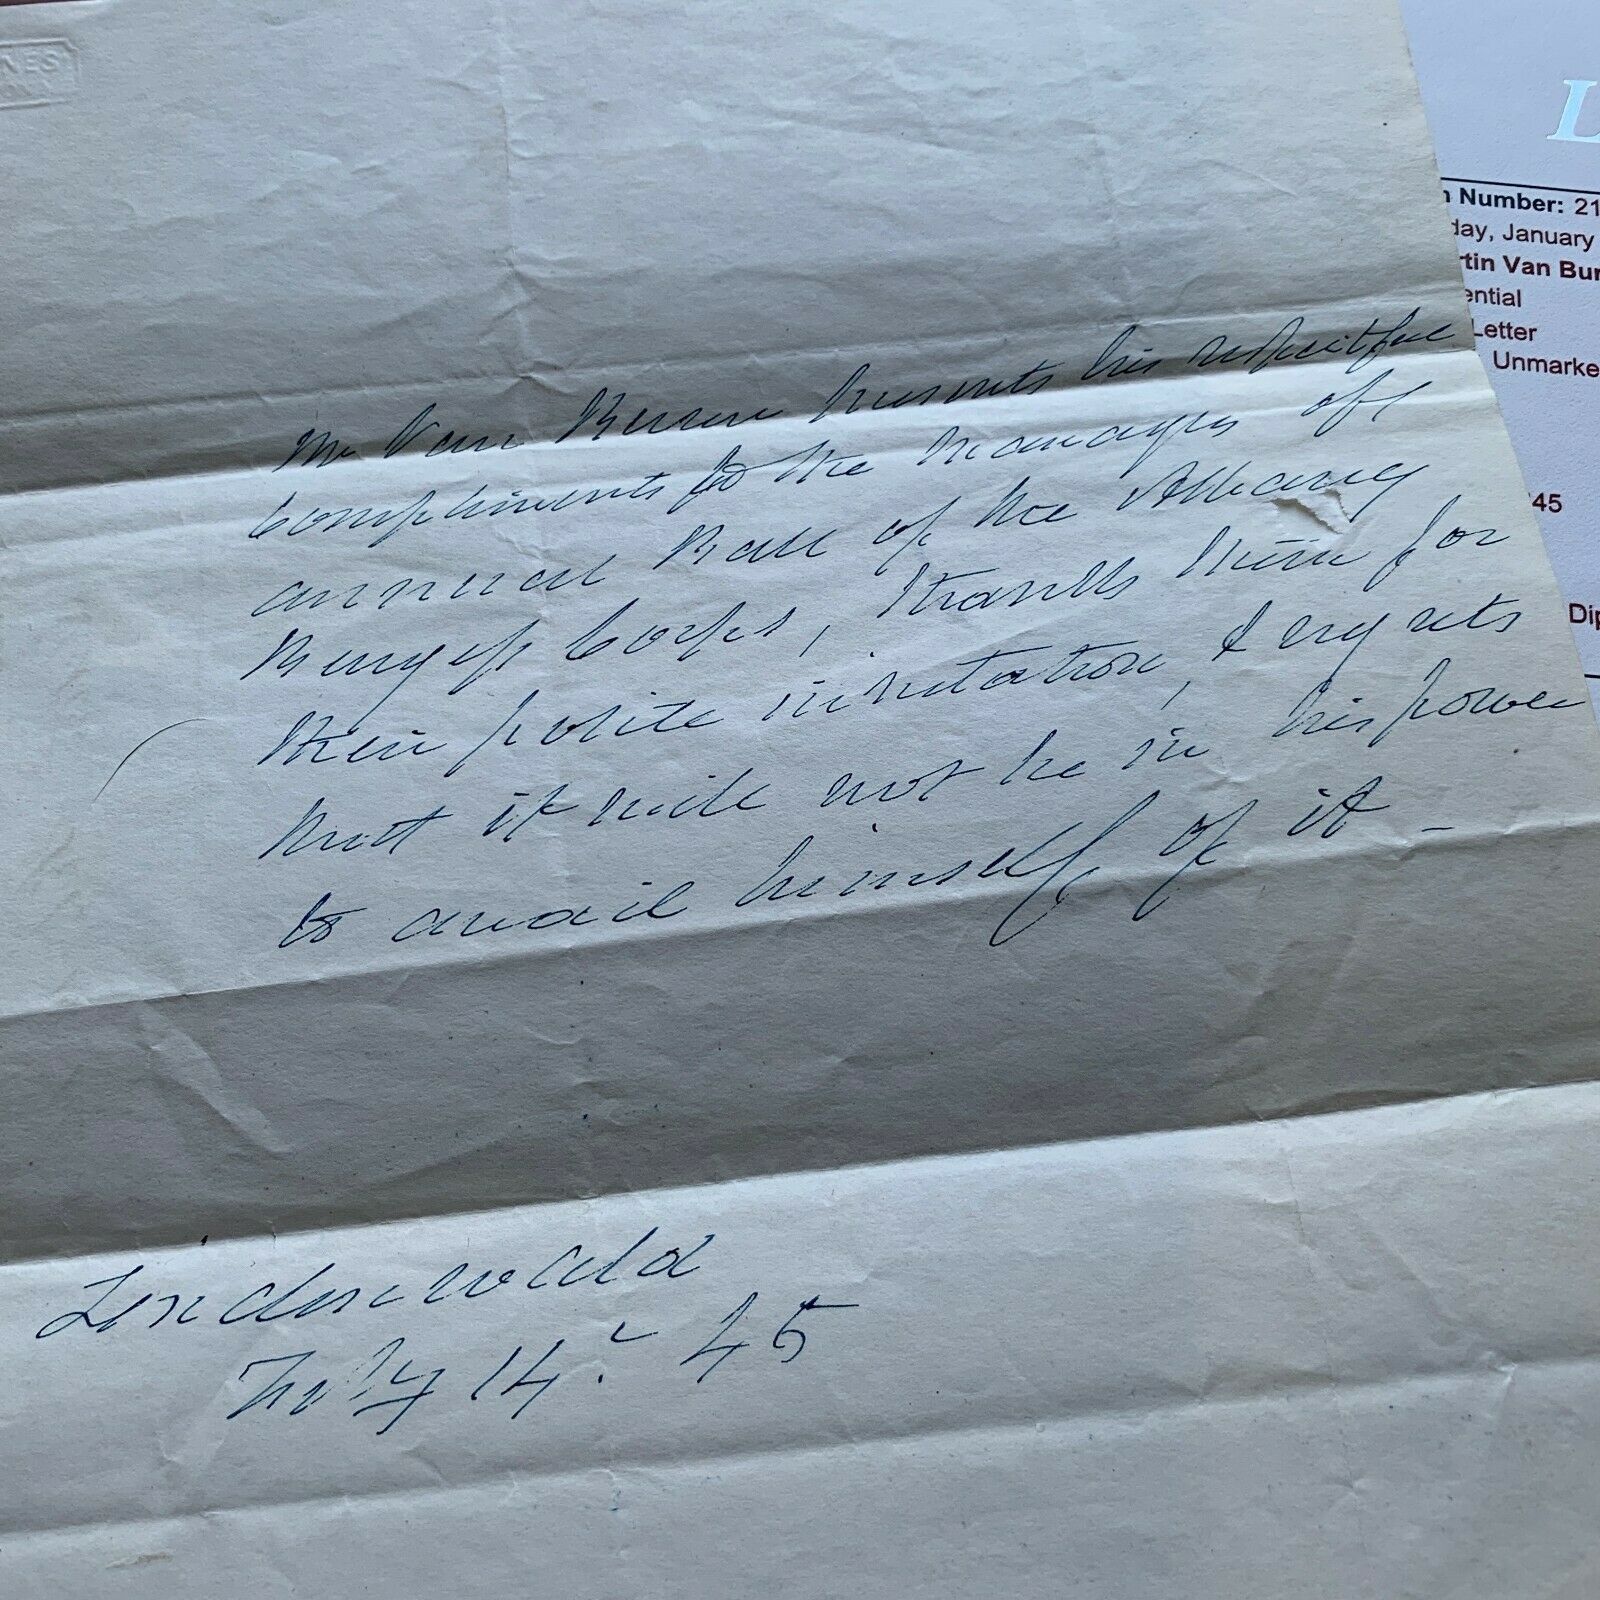 NES
Mr Van Buren presents his respectful
compliments to the managers of
annual Ball of the Albany
Burgess Corps, thanks them for
their polite invitation, & regrets
that it will not be in his power
to avail himself of it –
Lindenwald
July 14. 45
L
n Number: 21
day, January
rtin Van Bur
ential
Letter
Unmarke
45
Dip